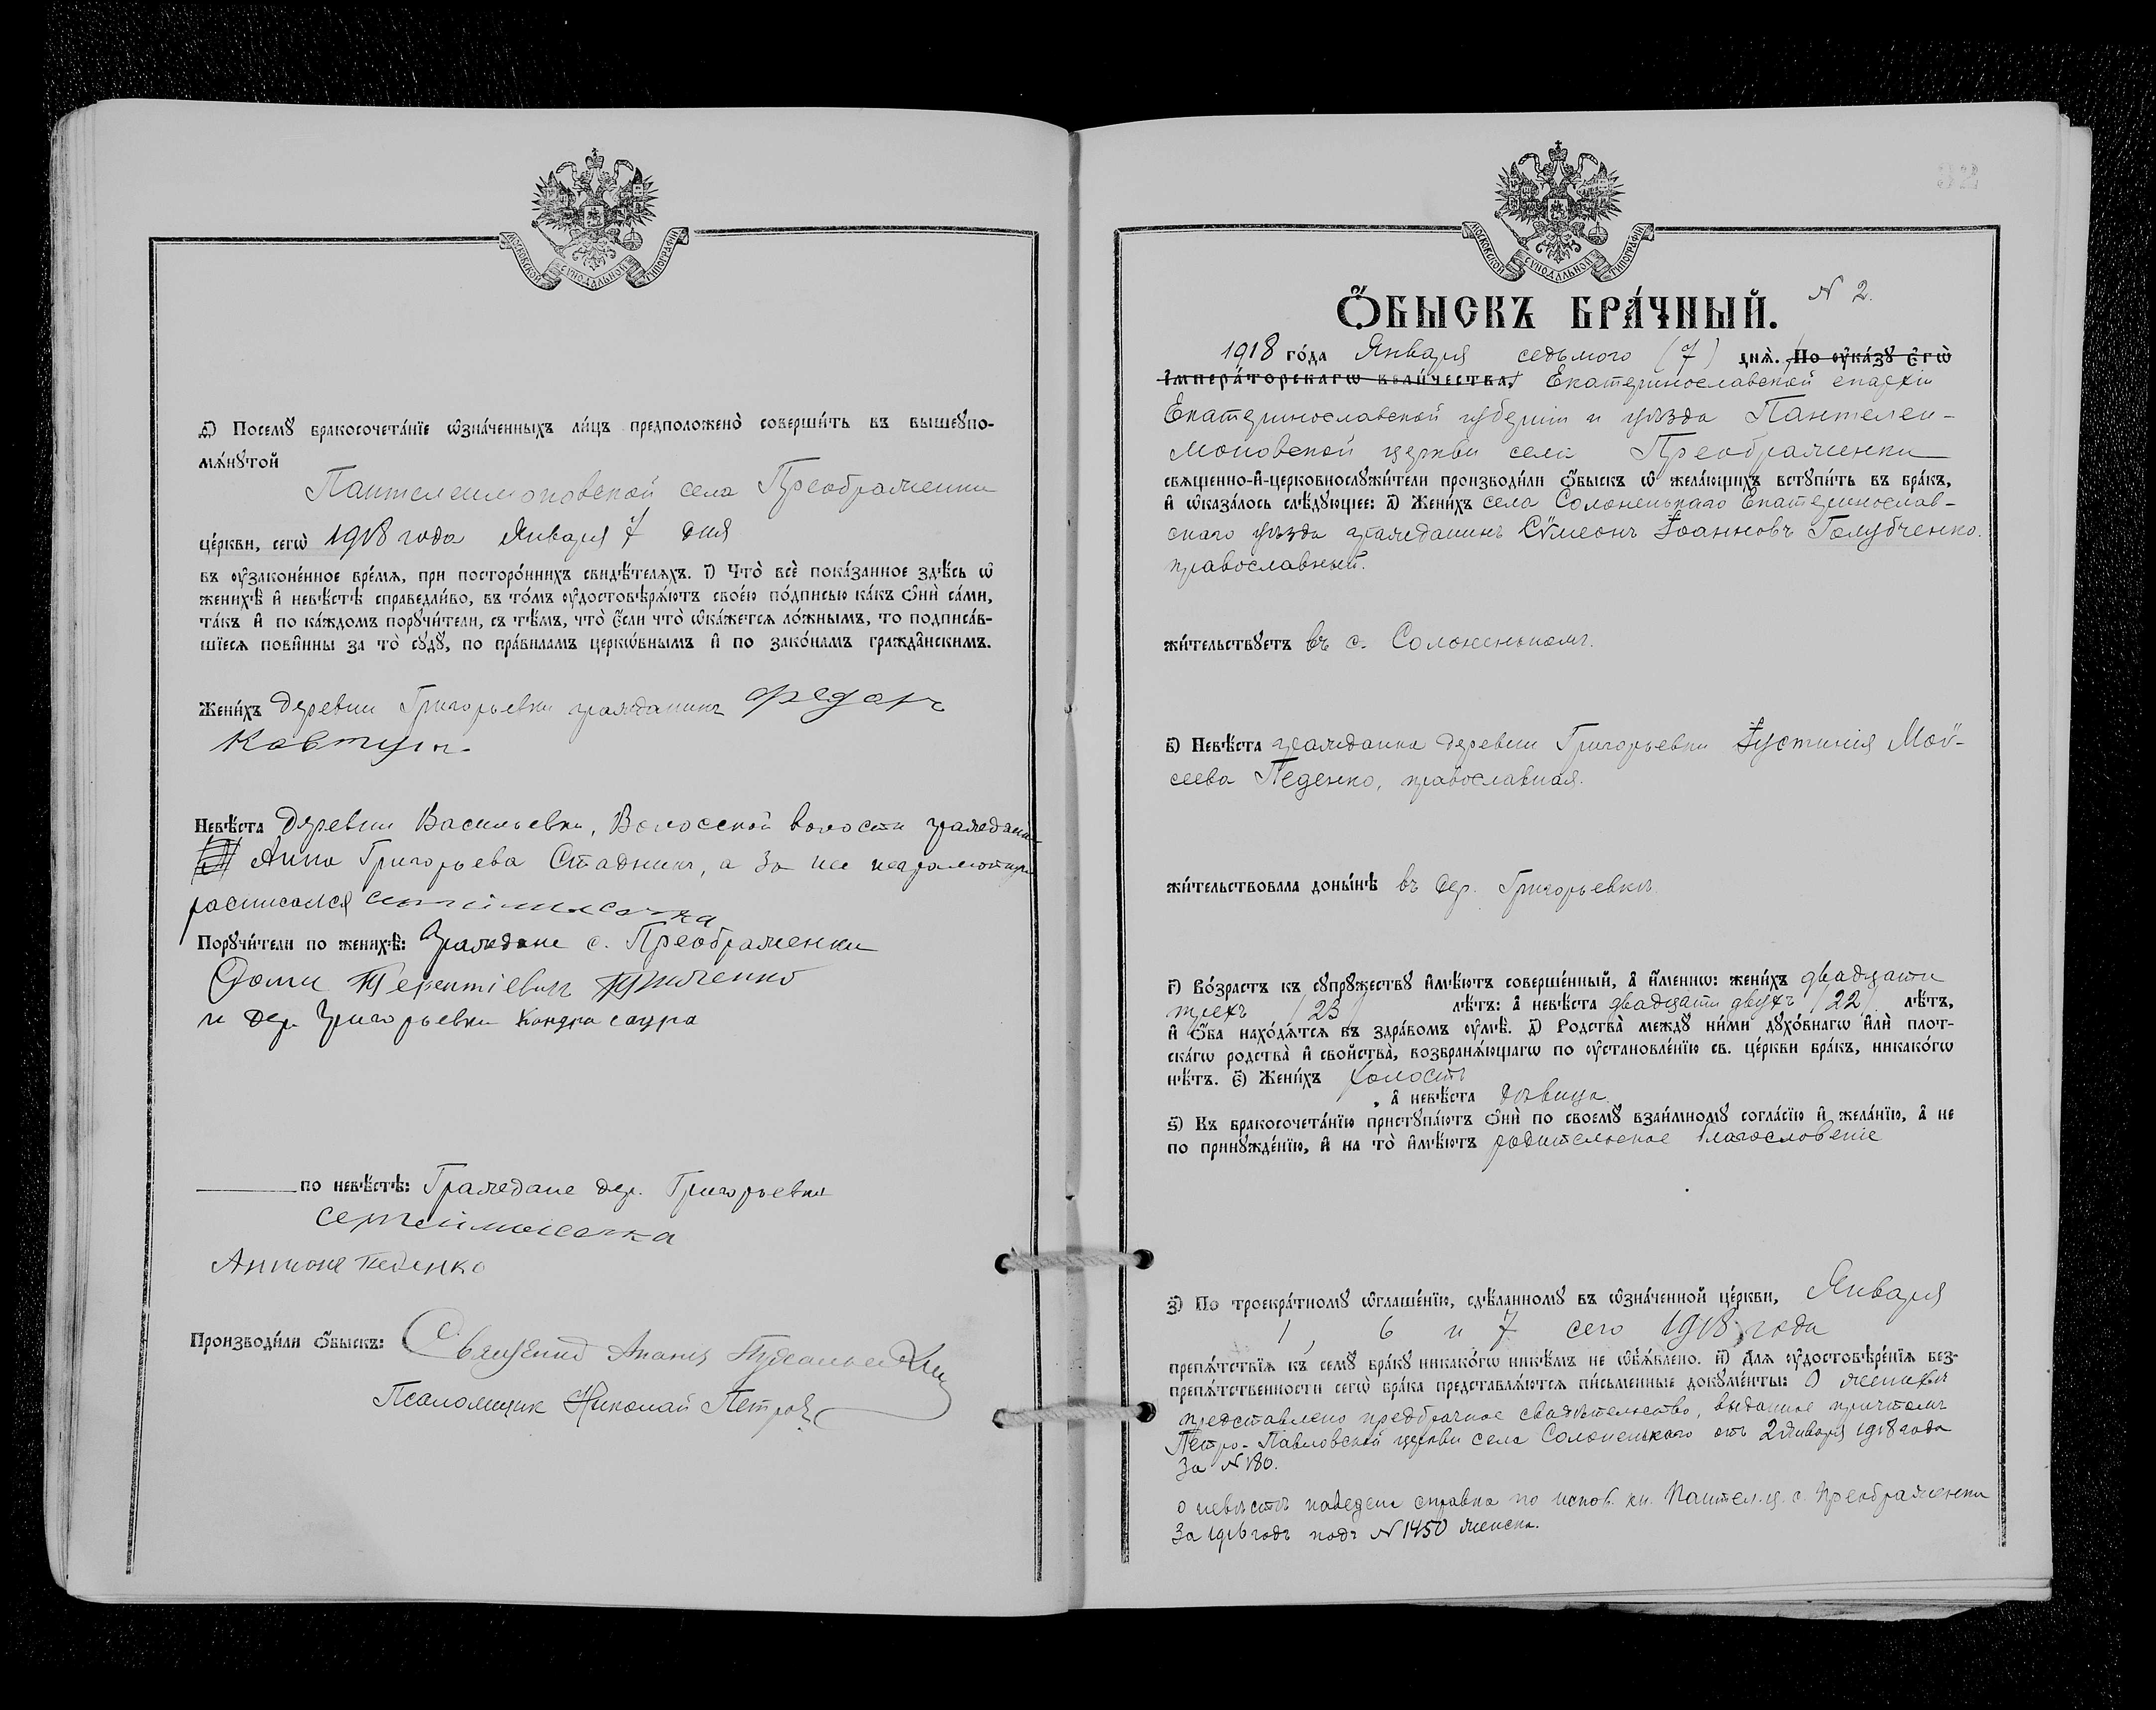 МОСКОВСКОЙ СѴНОДАЛЬНОЙ ТИПОГРАФІИ
д҃) Посемꙋ̀ бракосочета́нїе ѡ҆зна́ченныхъ ли́цъ предположено̀ соверши́ть въ вышеꙋпо-
мѧ́нꙋтой
Пантелеимоновской села Преображенки
це́ркви, сегѡ̀ 1918 года Января 7 дня
въ ᲂу҆законе́нное вре́мѧ, при посторо́ннихъ свидѣ́телѧхъ. і҃) Что̀ всѐ пока́занное здѣ́сь ѡ҆
женихѣ̀ и҆ невѣ́стѣ справедли́во, въ то́мъ ᲂу҆достовѣрѧ́ютъ свое́ю по́дписью ка́къ ѻ҆нѝ са́ми,
та́къ и҆ по ка́ждомъ порꙋчи́тели, съ тѣ́мъ, что̀ є҆́сли что̀ ѡ҆ка́жетсѧ ло́жнымъ, то подписа́в-
шїесѧ пови́нны за то̀ сꙋдꙋ̀, по пра́виламъ церко́внымъ и҆ по зако́намъ гражда́нскимъ.
Жени́хъ деревни Григорьевки гражданинъ Федоръ
Ковтунъ
Невѣ́ста Деревни Васильевки, Волосской волости гражданка
Анна Григорьева Стадникъ, а за нее неграмотную
росписался
Порꙋчи́тели по женихѣ̀: Граждане с. Преображенки
Фома Терентіевичъ
и дер. Григорьевки Кондра саура
по невѣ́стѣ: Граждане дер. Григорьевки
Антонъ Педенко
Производи́ли ѻ҆́быскъ: Священникъ
Псаломщик Николай Петровъ
МОСКОВСКОЙ СѴНОДАЛЬНОЙ ТИПОГРАФІИ
N 2.
Ѻ҆БЫСКЪ БРА́ЧНЫЙ.
1918 го́да Января седьмого (7) днѧ̀. По ᲂу҆ка́зꙋ є҆гѡ̀
і҆мпера́торскагѡ вели́чества, Екатеринославской епархіи
Екатеринославской губерніи и уѣзда Пантелеи-
моновской церкви села Преображенки
свѧщенно-и҆-церковнослꙋжи́тели производи́ли ѻ҆́быскъ ѡ҆ жела́ющихъ встꙋпи́ть въ бра́къ,
и҆ ѡ҆каза́лось слѣ́дꙋющее: а҃) Жени́хъ села Солоненькаго Екатеринослав-
скаго уѣзда гражданинъ Сѵмеонъ Іоанновъ Голубченко.
православный.
жи́тельствꙋетъ въ с. Солоненькомъ.
в҃) Невѣ́ста гражданка деревни Григорьевки Іустинія Мои-
сеева Педенко, православная.
жи́тельствовала доны́нѣ въ дер. Григорьевкѣ.
г҃) Во́зрастъ къ сꙋпрꙋ́жествꙋ и҆мѣ́ютъ соверше́нный, а҆ и҆́меннѡ: жени́хъ двадцати
трехъ /23/ лѣ́тъ: а҆ невѣ́ста двадцати двухъ /22/ лѣ́тъ,
и҆ ѻ҆́ба нахо́дѧтсѧ въ здра́вомъ ᲂу҆мѣ̀. д҃) Родства̀ междꙋ̀ ни́ми дꙋхо́внагѡ и҆лѝ плот-
ска́гѡ родства̀ и҆ сво́йства̀, возбранѧ́ющагѡ по ᲂу҆становле́нїю св. це́ркви бра́къ, никако́гѡ
нѣ́тъ. є҃) Жени́хъ холостъ
, а҆ невѣ́ста дѣвица.
ѕ҃) Къ бракосочета́нїю пристꙋпа́ютъ ѻ҆нѝ по своемꙋ̀ взаи́мномꙋ согла́сїю и҆ жела́нїю, а҆ не
по принꙋжде́нїю, и҆ на то̀ и҆мѣ́ютъ родительское благословеніе
з҃) По троекра́тномꙋ ѡ҆глаше́нїю, сдѣ́ланномꙋ въ ѡ҆зна́ченной це́ркви, Января
1, 6 и 7 сего 1918 года
препѧ́тствїѧ къ семꙋ̀ бра́кꙋ никако́гѡ никѣ́мъ не ѡ҆б̾ѧ́влено. и҃) Длѧ ᲂу҆достовѣре́нїѧ без-
препѧ́тственности сегѡ̀ бра́ка представлѧ́ютсѧ пи́сьменные докꙋме́нты: О женихѣ
представлено предбрачное свидѣтельство, выданное причтомъ
Петро-Павловской церкви села Солоненькаго отъ 2 Января 1918 года
за N 180.
о невѣстѣ наведена справка по испов. кн. Пантел. ц. с. Преображенки
за 1916 годъ подъ N 1450 женска.